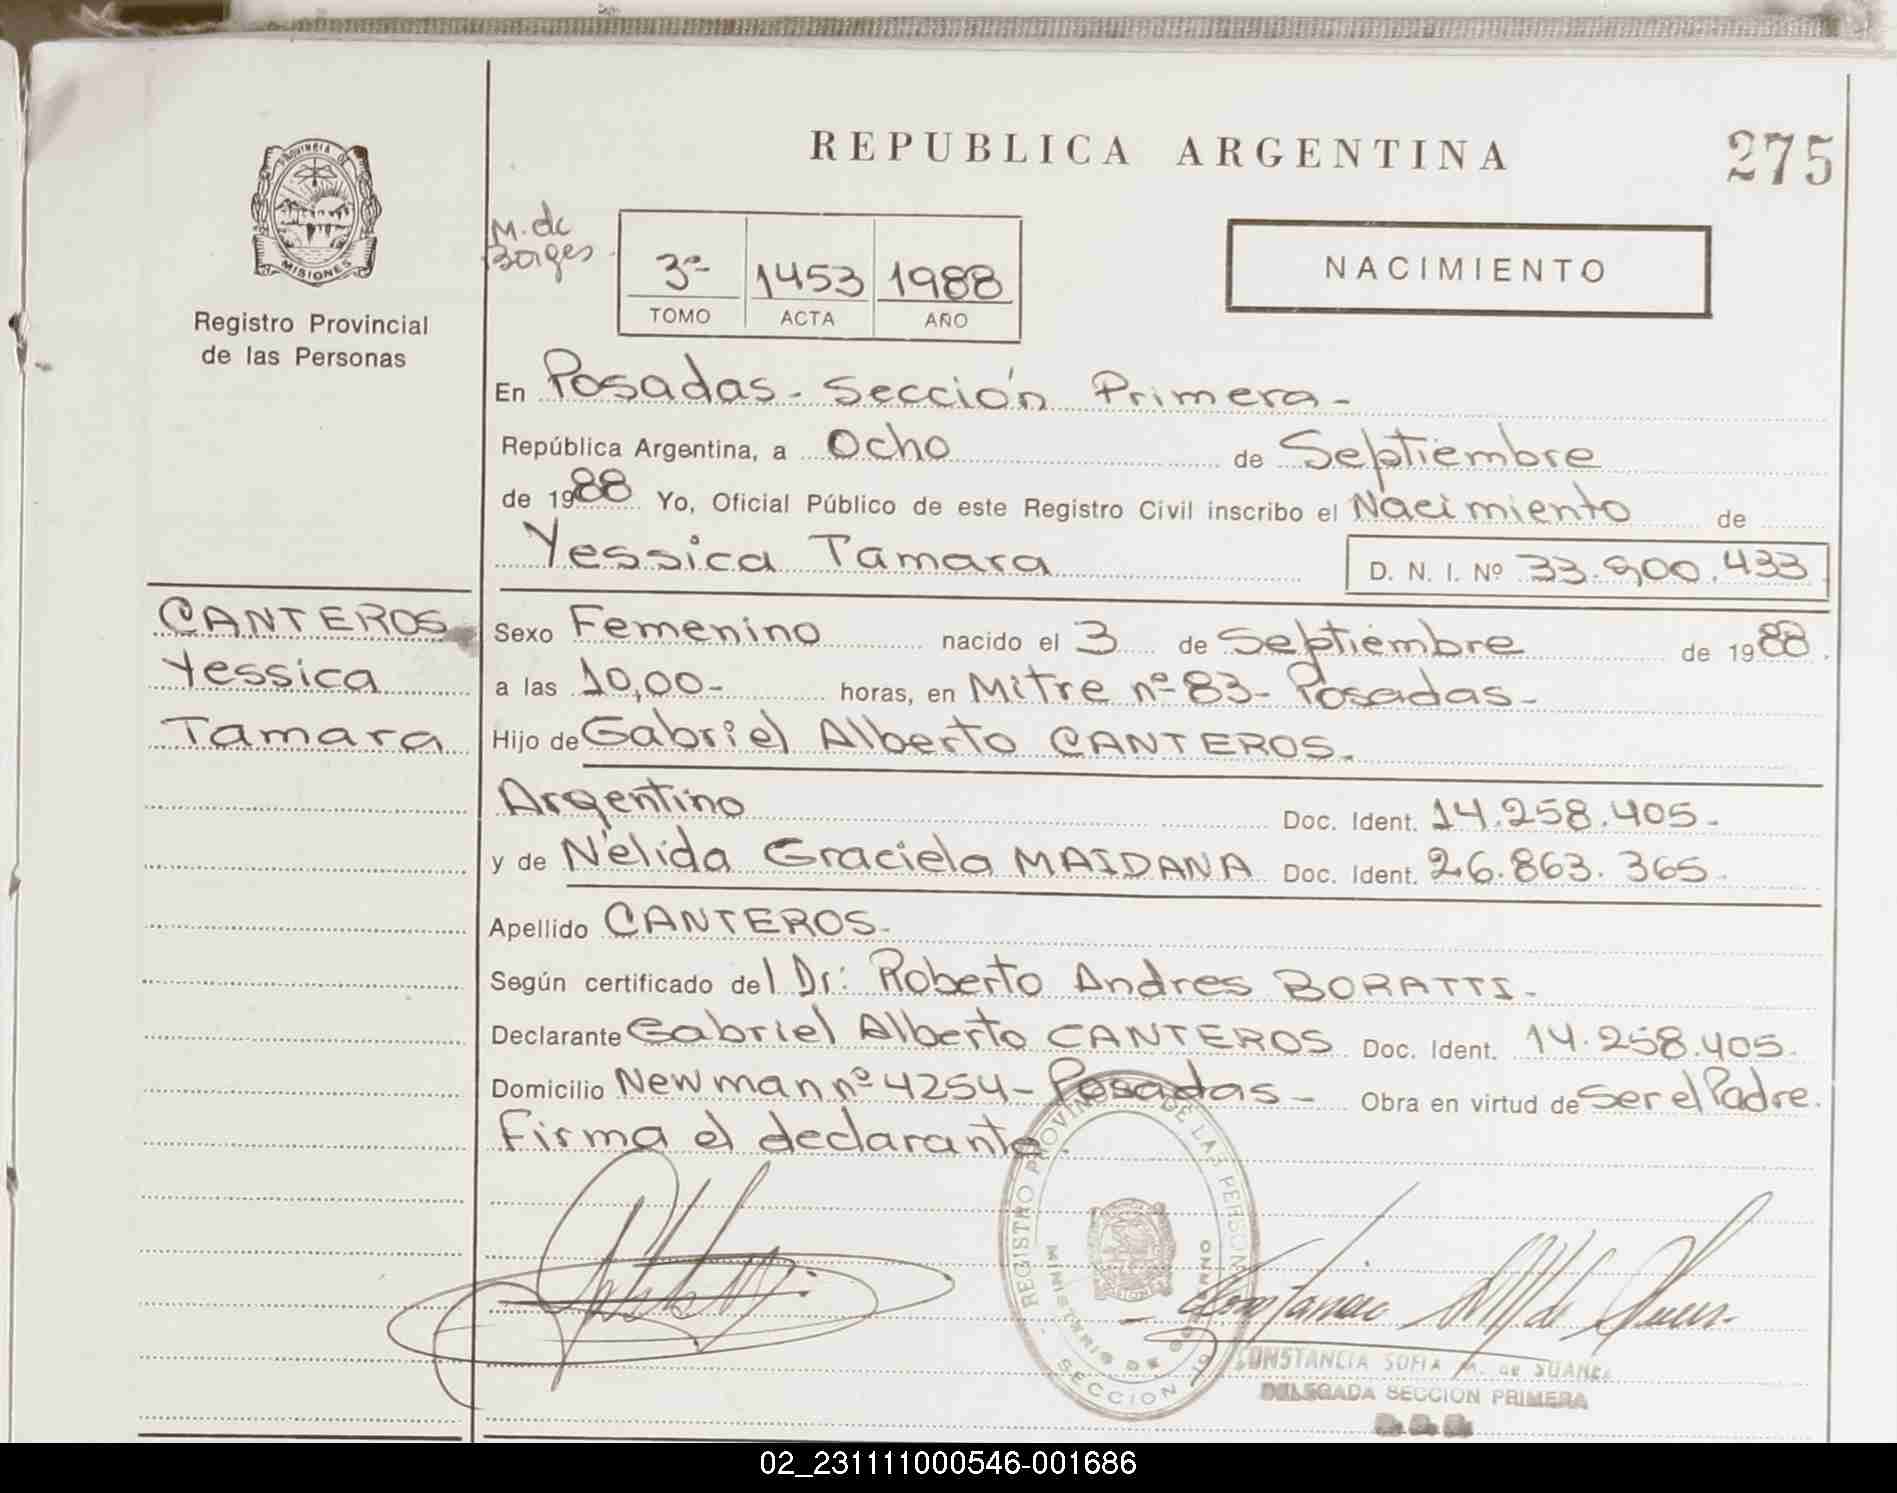 REPUBLICA ARGENTINA
275
PROVINCIA DE
MISIONES
Registro Provincial
de las Personas
M. de
Borges
3º 1453 1988
TOMO ACTA AÑO
NACIMIENTO
En Posadas - Sección Primera -
República Argentina, a Ocho de Septiembre
de 1988 Yo, Oficial Público de este Registro Civil inscribo el Nacimiento de
Yessica Tamara D. N. I. Nº 33.900.433
CANTEROS
Yessica
Tamara
Sexo Femenino nacido el 3 de Septiembre de 1988.
a las 10,00- horas, en Mitre nº 83- Posadas-
Hijo de Gabriel Alberto CANTEROS.
Argentino Doc. Ident. 14.258.405-
y de Nélida Graciela MAIDANA Doc. Ident. 26.863.365-
Apellido CANTEROS-
Según certificado del Dr: Roberto Andres BORATTI-
Declarante Gabriel Alberto CANTEROS Doc. Ident. 14.258.405-
Domicilio Newman nº 4254- Posadas- Obra en virtud de Ser el Padre.
Firma el declarante
REGISTRO PROVIN DE LAS PERSON
MINISTERIO DE GOBIERNO
SECCION 1º
CONSTANCIA SOFIA M. de SUAREZ
DELEGADA SECCION PRIMERA
02_231111000546-001686